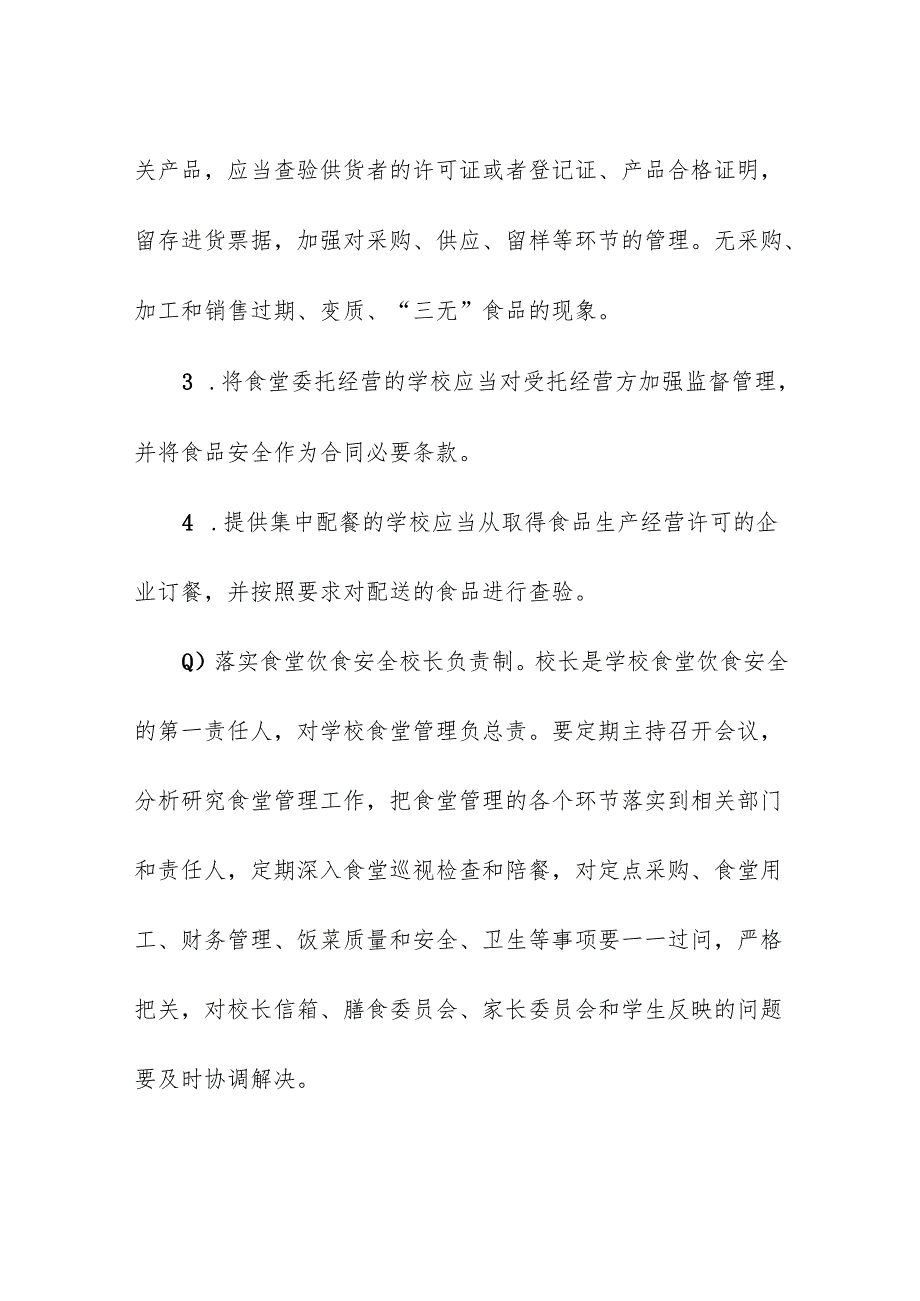 关产品，应当查验供货者的许可证或者登记证、产品合格证明，
留存进货票据，加强对采购、供应、留样等环节的管理。无采购、
加工和销售过期、变质、“三无”食品的现象。
3 .将食堂委托经营的学校应当对受托经营方加强监督管理，
并将食品安全作为合同必要条款。
4 .提供集中配餐的学校应当从取得食品生产经营许可的企
业订餐，并按照要求对配送的食品进行查验。
Q）落实食堂饮食安全校长负责制。校长是学校食堂饮食安全
的第一责任人，对学校食堂管理负总责。要定期主持召开会议，
分析研究食堂管理工作，把食堂管理的各个环节落实到相关部门
和责任人，定期深入食堂巡视检查和陪餐，对定点采购、食堂用
工、财务管理、饭菜质量和安全、卫生等事项要一一过问，严格
把关，对校长信箱、膳食委员会、家长委员会和学生反映的问题
要及时协调解决。